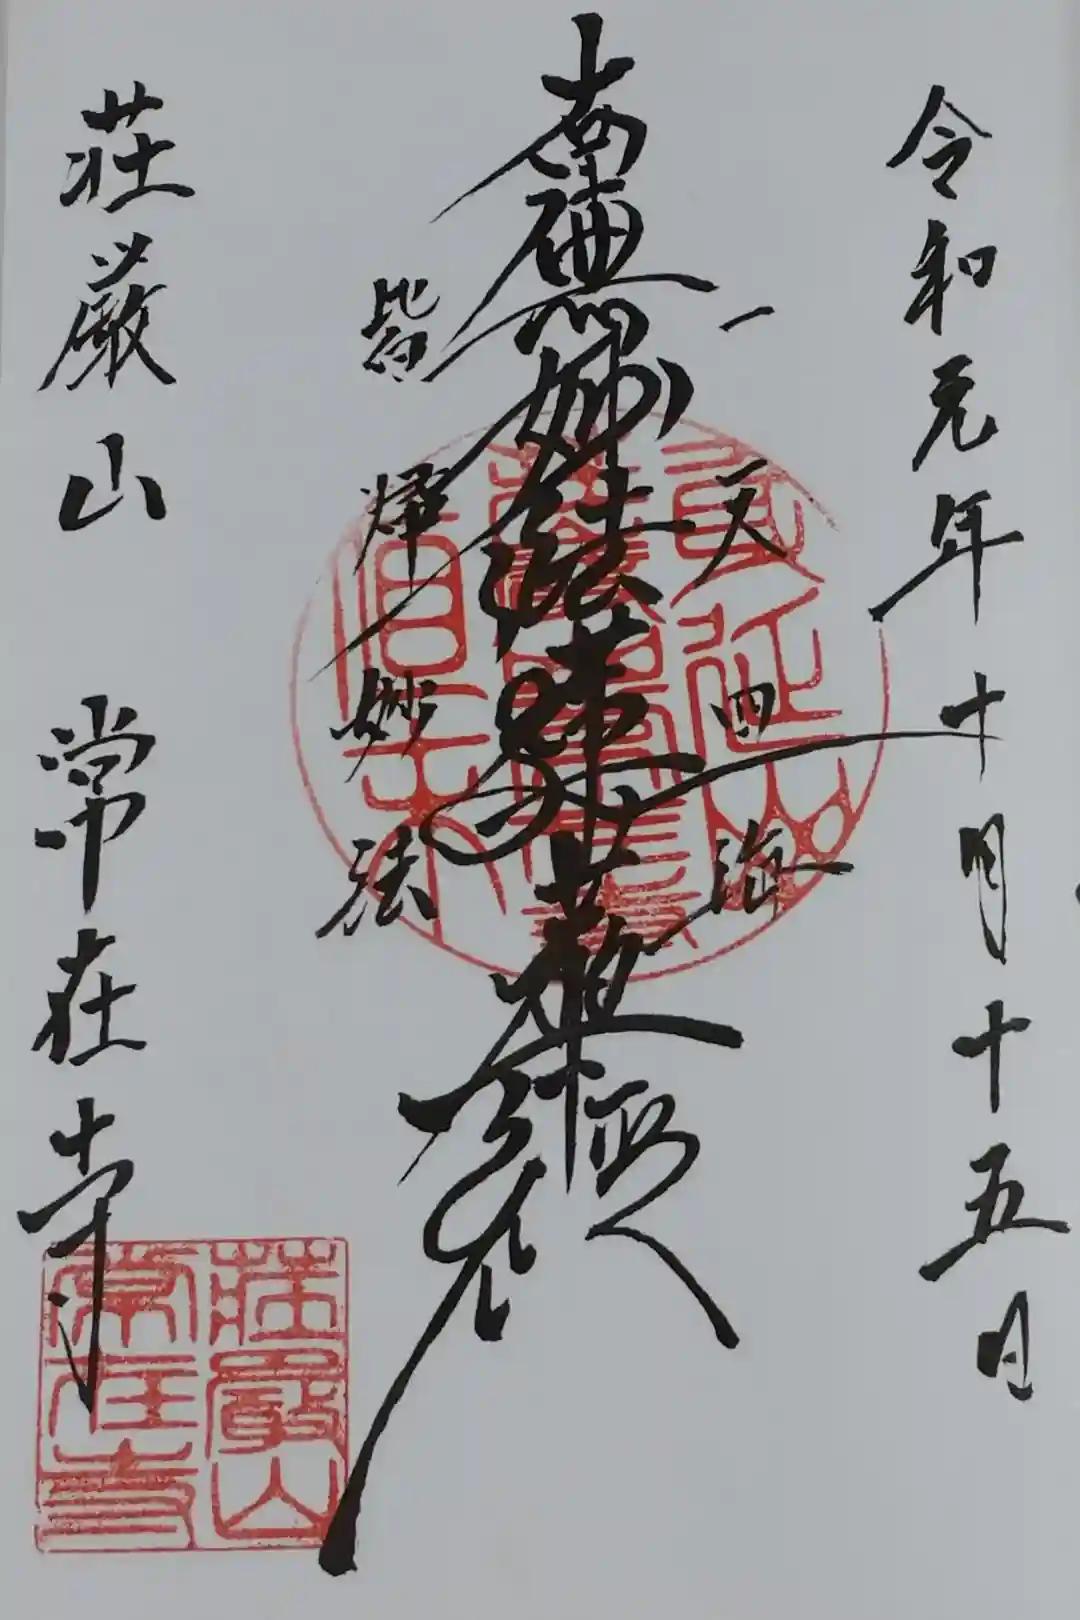 令和元年十月十五日
一天四海
南無妙法蓮華経
皆帰妙法
荘厳山 常在寺
荘厳山
常在寺